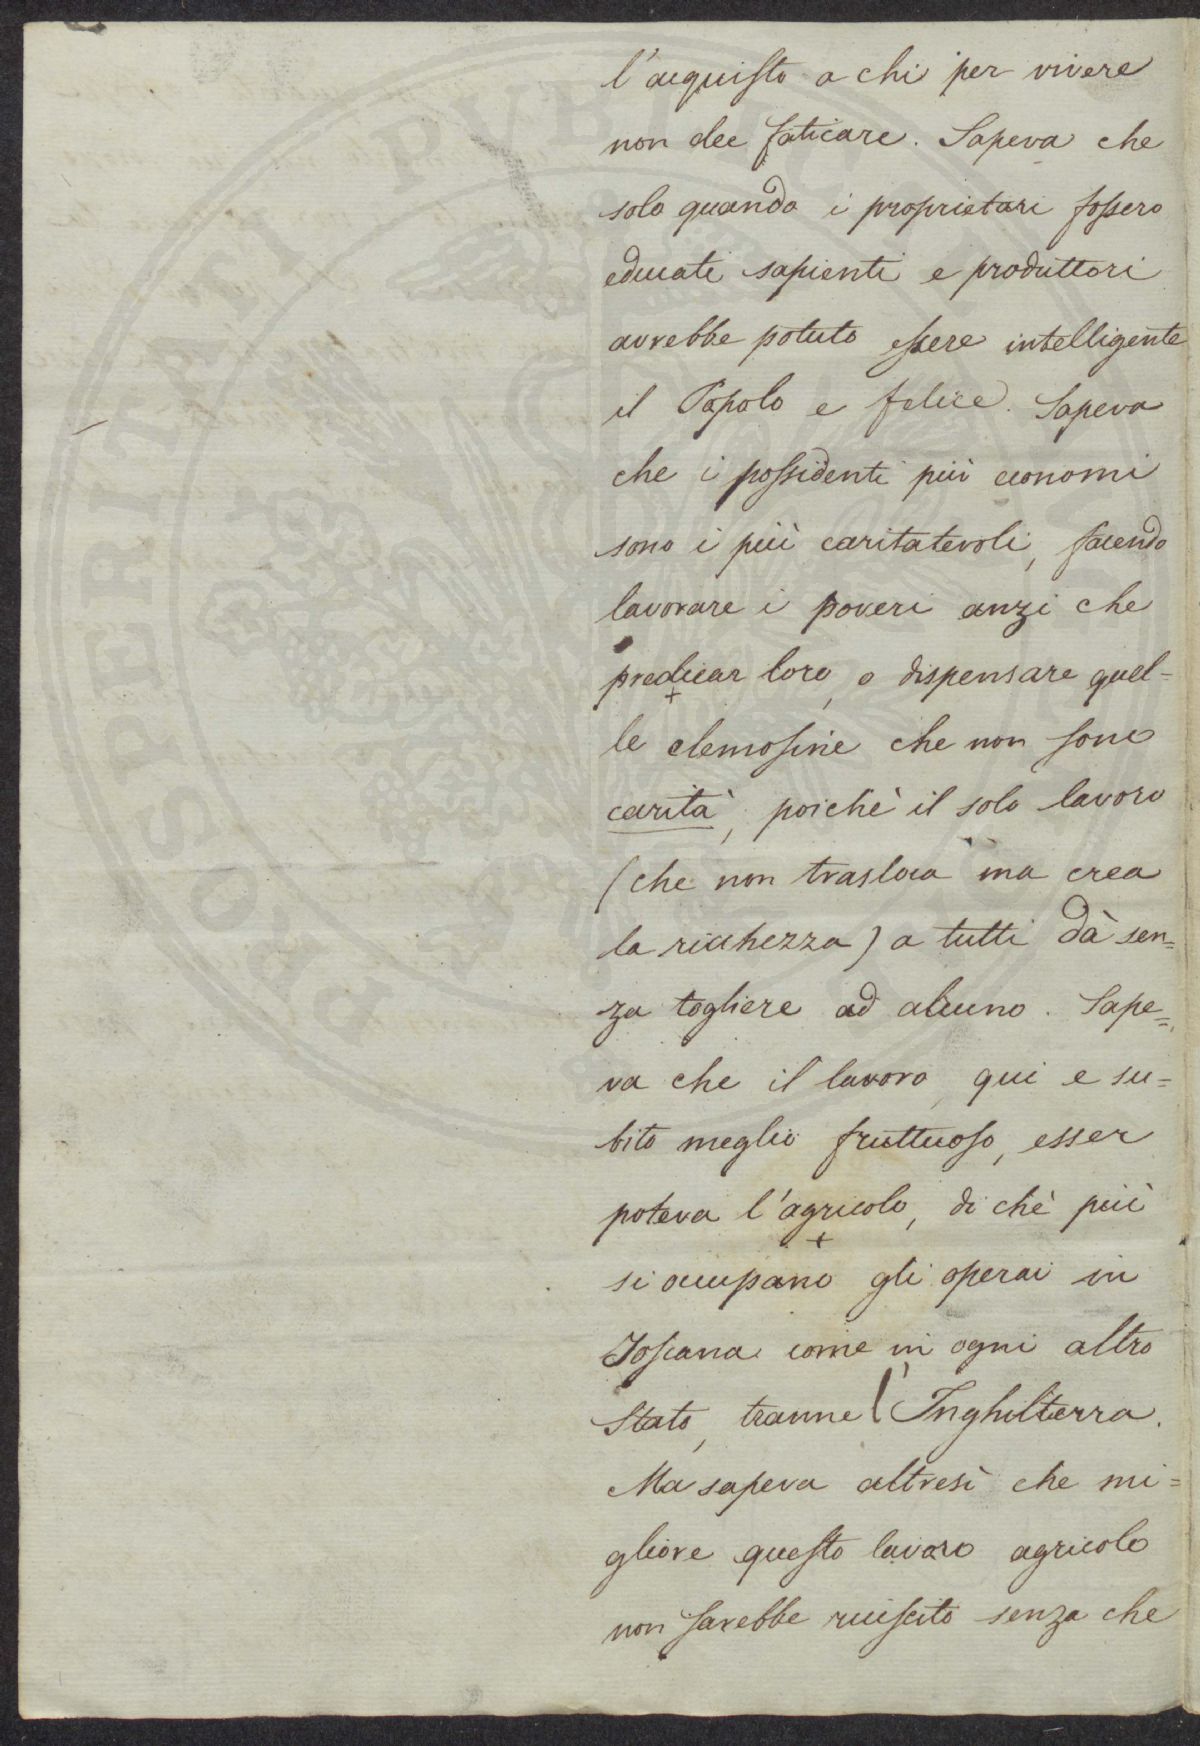 l'acquisto a chi per vivere
non dee faticare. Sapeva che
solo quando i proprietari fossero
educati sapienti e produttori
avrebbe potuto essere intelligente
il Popolo e felice. Sapeva
che i possidenti più economi
sono i più caritatevoli, facendo
lavorare i poveri anzi che
predicar loro, o dispensare quel=
le elemosine che non sono
carità, poichè il solo lavoro
(che non trasloca ma crea
la ricchezza) a tutti dà sen=
za togliere ad alcuno. Sape=
va che il lavoro, qui e su=
bito meglio fruttuoso, esser
poteva l'agricolo, di chè più
si occupano gli operai in
Toscana come in ogni altro
Stato, tranne l'Inghilterra.
Ma sapeva altresì che mi=
gliore questo lavoro agricolo
non sarebbe riuscito senza che